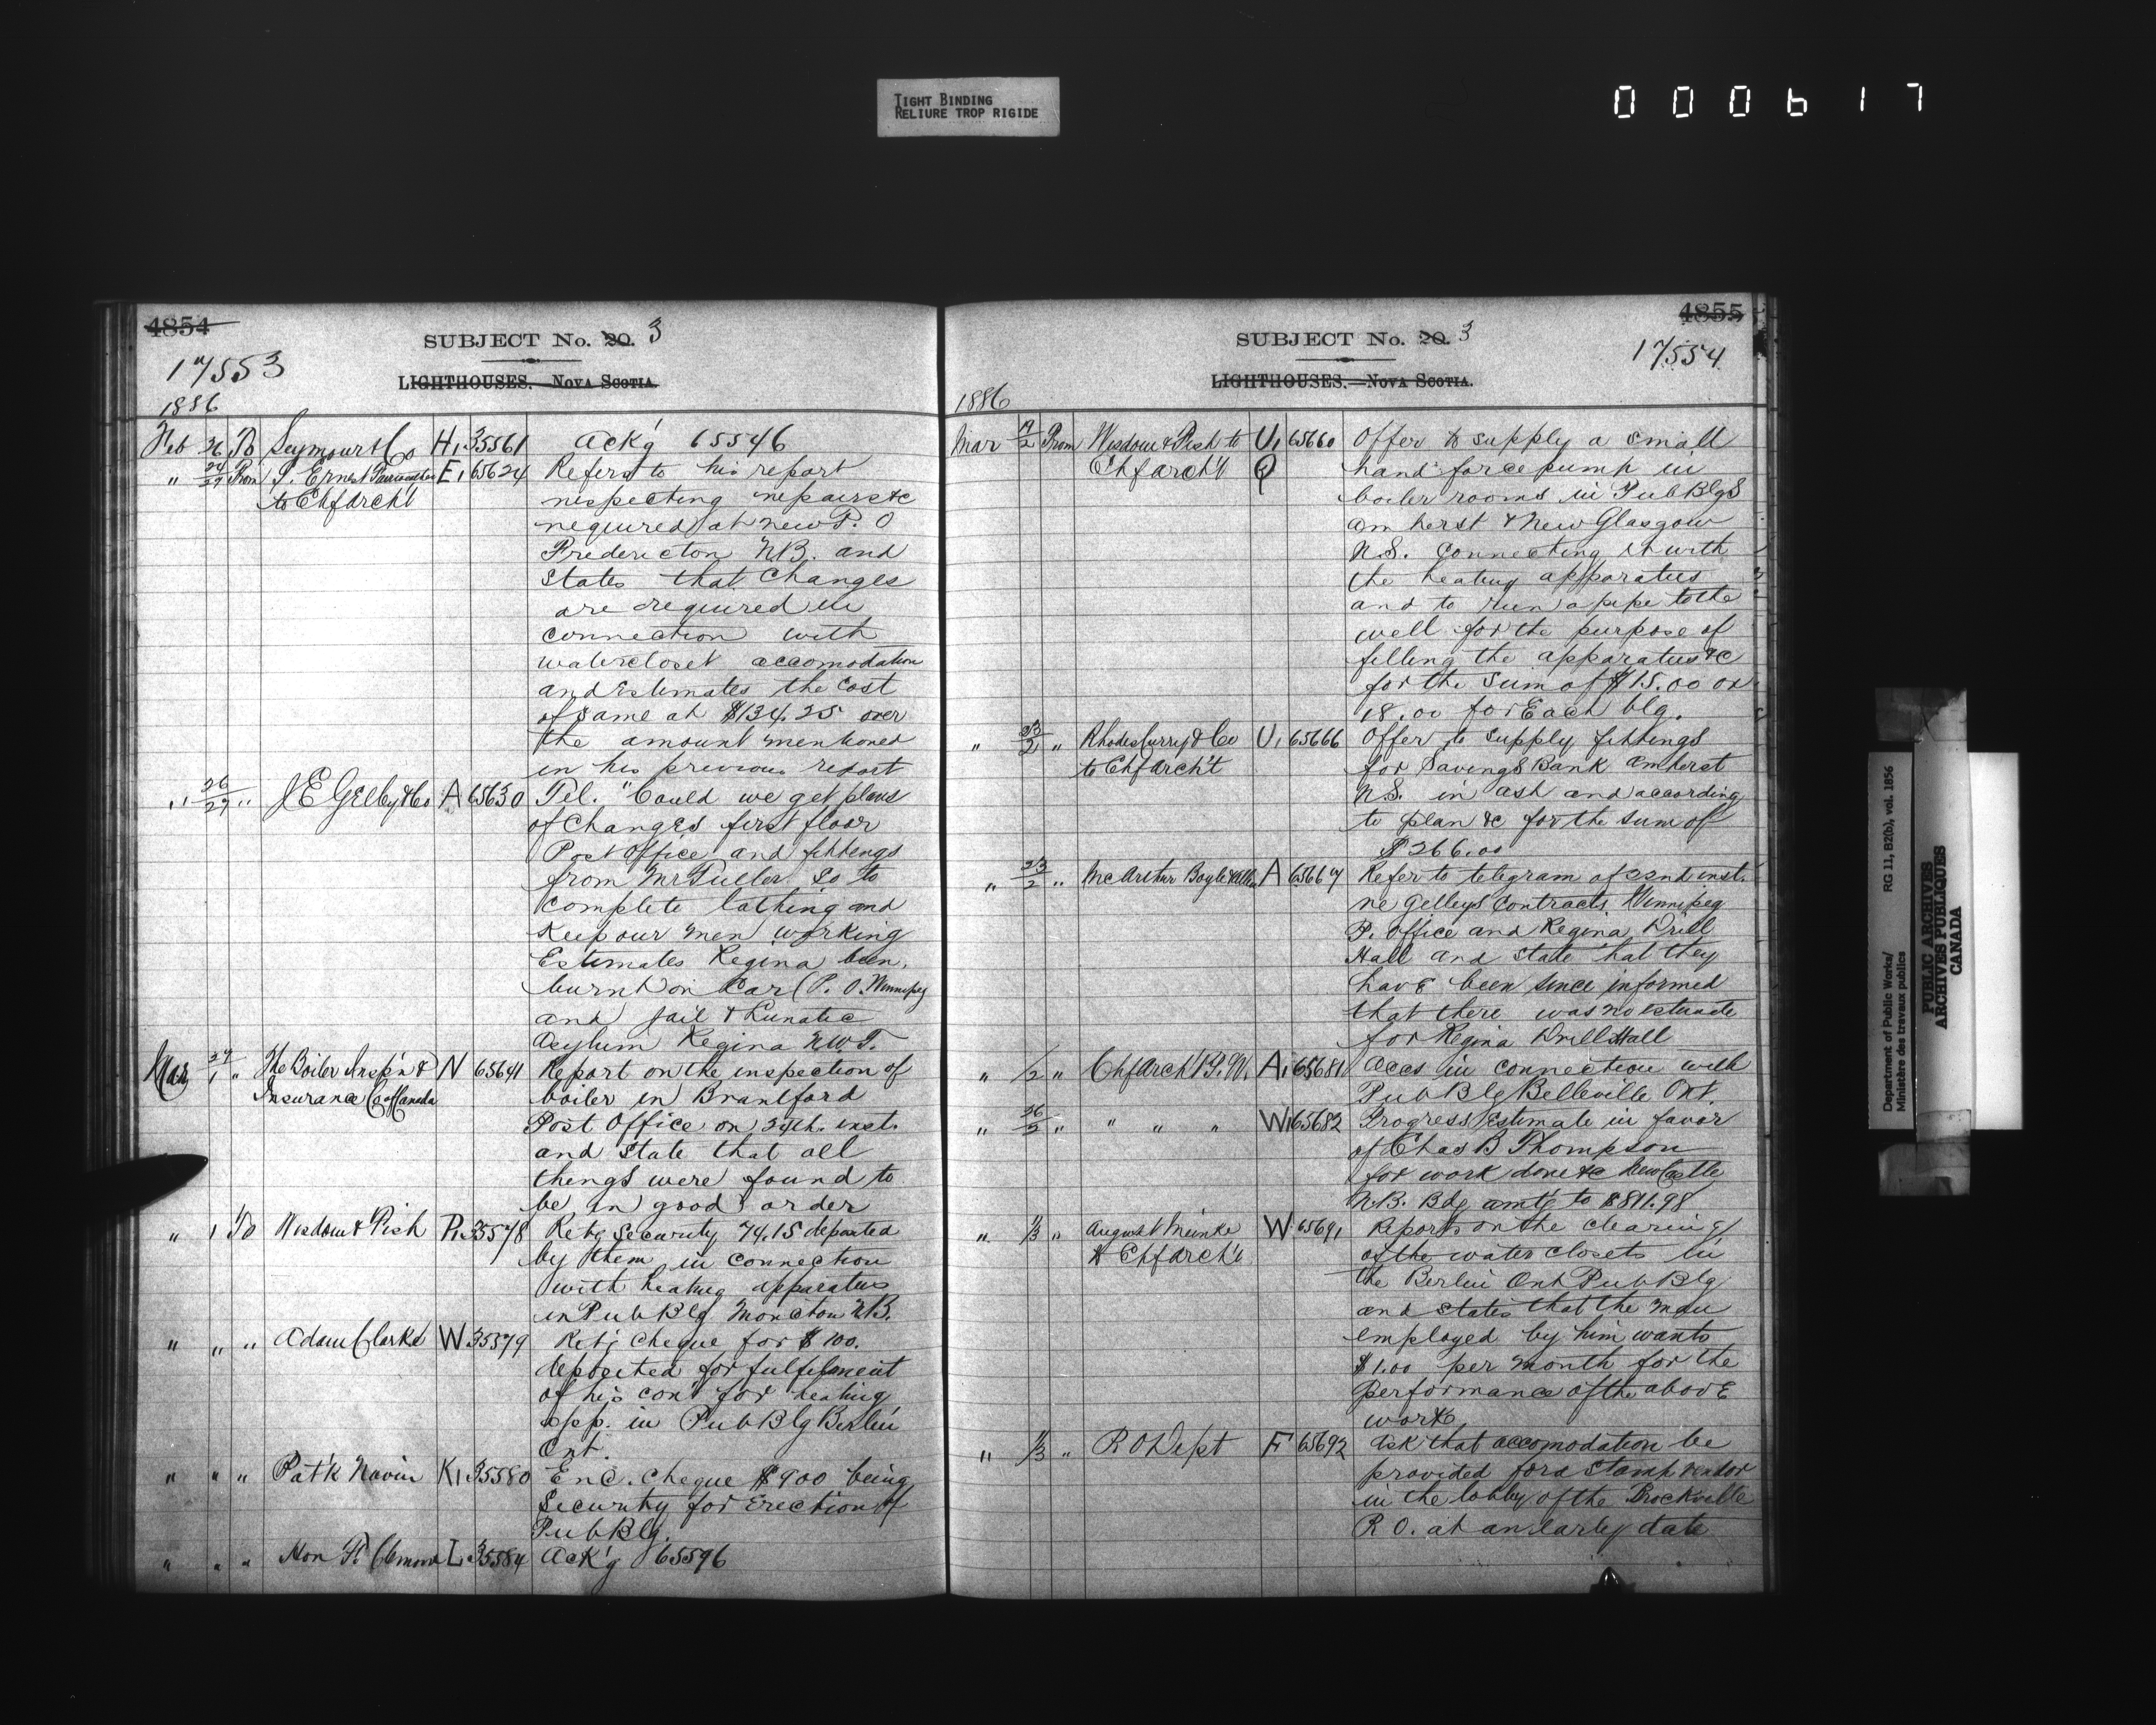 TIGHT BINDING
RELIURE TROP RIGIDE
000617
4854
SUBJECT No. 20. 3
17553
LIGHTHOUSES. NOVA SCOTIA.
1886
Feb 26 To Seymour & Co H1 35561 Ack'g 65546
" 24/27 From J. Ernest Fairweather E1 65624 Refers to his report
to Chf Arch't respecting repairs &c
required at new P. O
Fredericton N.B. and
states that changes
are required in
connection with
watercloset accomodation
and Estimates the cost
of same at $134.25 over
the amount mentioned
in his previous report
" 26/27 " J E Gelley & Co A 65630 Tel. "Could we get plans
of changes first floor
Post Office and fittings
from Mr Fuller So to
complete lathing and
Keep our men working
Estimates Regina been
burnt on Car (P. O. Winnipeg
and Jail & Lunatic
Asylum Regina N.W.T.
Mar 27/1 " The Boiler Insp'n & N 65641 Report on the inspection of
Insurance Co of Canada boiler in Brantford
Post Office on 24th. inst.
and state that all
things were found to
be in good order
" 1 To Wisdom & Fish P1 35578 Retg Security 74.15 deposited
by them in connection
with heating apparatus
in Pub Blg Moncton N.B.
" " " Adam Clarke W 35579 Ret'g cheque for $100.
deposited for fulfilment
of his con't for heating
app. in Pub Blg Berlin
Ont.
" " " Pat'k Navin K1 35580 Enc. cheque $900 being
Security for Erection of
Pub Blg.
" " " Hon F. Clemow L 35584 Ack'g 65596
4855
SUBJECT No. 20. 3
17554
LIGHTHOUSES.—NOVA SCOTIA.
1886
Mar 19/2 From Wisdom & Fish to U1 65660 Offer to supply a small
Chf arch't Q hand force pump in
boiler rooms in Pub Blgs
Amherst & New Glasgow
N.S. Connecting it with
the heating apparatus
and to run a pipe to the
well for the purpose of
filling the apparatus &c
for the sum of $15.00 or
18.00 for Each blg.
" 23/2 " Rhodes Curry & Co U1 65666 Offer to supply fittings
to Chf arch't for Savings Bank Amherst
N.S. in ash and according
to plan &c for the sum of
$266.00
" 23/2 " McArthur Boyle & Allen A 65667 Refer to telegram of 22nd inst.
re Gelleys Contracts Winnipeg
P. Office and Regina Drill
Hall and state that they
have been since informed
that there was no estimate
for Regina Drill Hall
" 1/2 " Chf arch't P.W. A1 65681 Accs in connection with
Pub Blg Belleville Ont.
" 26/2 " " " " W1 65682 Progress Estimate in favor
of Chas B Thompson
for work done &c New Castle
N.B. Bdg amt'g to $811.98
" 1/3 " August Meinke W 65691 Reports on the clearing
to Chf arch't of the water closets in
the Berlin Ont Pub Blg
and states that the man
employed by him wants
$1.00 per month for the
performance of the above
work
" 1/3 " P O Dept F 65692 Ask that accomodation be
provided for a stamp vendor
in the lobby of the Brockville
P. O. at an early date
Department of Public Works/ RG 11, B2(b), vol. 1856
Ministère des travaux publics
PUBLIC ARCHIVES
ARCHIVES PUBLIQUES
CANADA